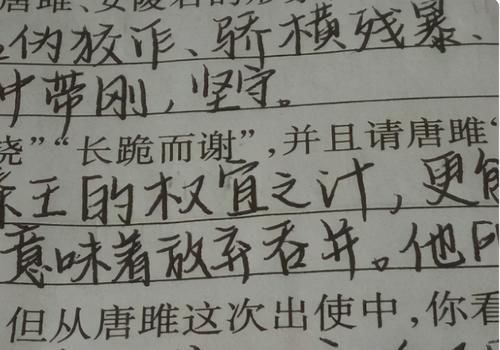 唐雎、安陵君的形
伪狡诈、骄横残暴、
中带刚，坚守。
挠”“长跪而谢”，并且请唐雎“
秦王的权宜之计，更
意味着放弃吞并。他
但从唐雎这次出使中，你看